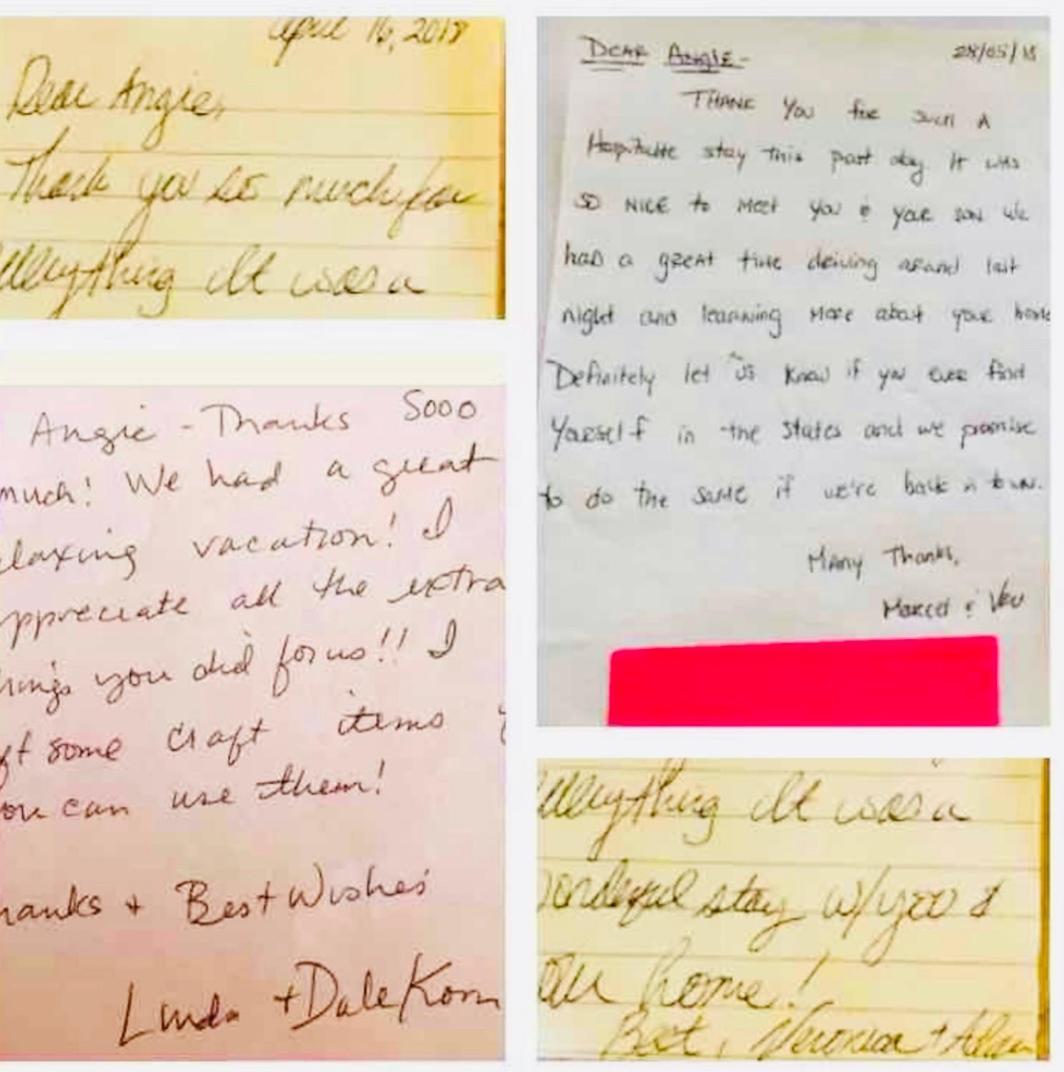 April 16, 2018
Dear Angie,
Thank you so much for
everything It was a
Angie - Thanks Sooo
much! We had a great
elaxing vacation! I
appreciate all the extra
hings you did for us!! I
ft some craft items
you can use them!
hanks + Best Wishes
Linda + Dale Korn
DEAR ANGIE-
28/05/18
THANK YOU for such A
stay this past day It was
SO NICE to meet you & your son We
had a great time driving around last
night and learning more about your home
Definitely let us know if you ever find
Yourself in the states and we promise
to do the same if we're back in town.
Many Thanks,
Marcel &
everything It was a
onderful stay w/you &
our home!
Best, Veronica + Adam